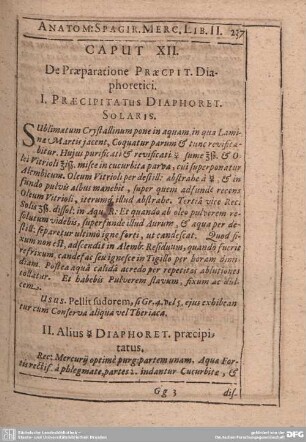 ANATOM: SPAGIR. MERC. LIB. II. 237
CAPUT XII.
De Præparatione PRÆCPIT. Dia-
phoretici.
I. PRÆCIPITATUS DIAPHORET.
SOLARIS.
SUblimatum Crystallinum pone in aquam, in qua Lami-
næ Martis jacent, Coquatur parum & tunc revifica-
bitur. Hujus purificati & revificati ☿ sume & O-
lei Vitrioli misce in cucurbita parva, cui superponatur
Alembicus. Oleum Vitrioli per destill: abstrahe à ☿, & in
fundo pulvis albus manebit, super quem adfunde recens
Oleum Vitrioli, iterumq; illud abstrahe. Tertiâ vice Reci
Solis dissol: in Aqu. Et quando ab oleo pulverem re-
solutum videbis, superfunde illud Aurum, & aqua per de-
still. separetur ultimò igne forti, ut candescat. Quod fi-
xum non est, adscendit in Alemb. Residuum, quando fuerit
refrixum, candefac seu ignesce in Tigillo per horam dimi-
diam. Postea aquâ calidâ acredo per repetitas ablutiones
tollatur. Et habebis Pulverem flavum, fixum ac
Usus. Pellit sudorem, si Gr. 4. vel 5. ejus exhibean
tur cum Conserva aliqua vel Theriaca.
II. Alius ☿ DIAPHORET. præcipi-
tatus.
Rec: Mercurij optimè purg: partem unam. Aqua For-
tis rectif. à phlegmate, partes 2. indantur Cucurbitæ, &
Gg 3 dis-